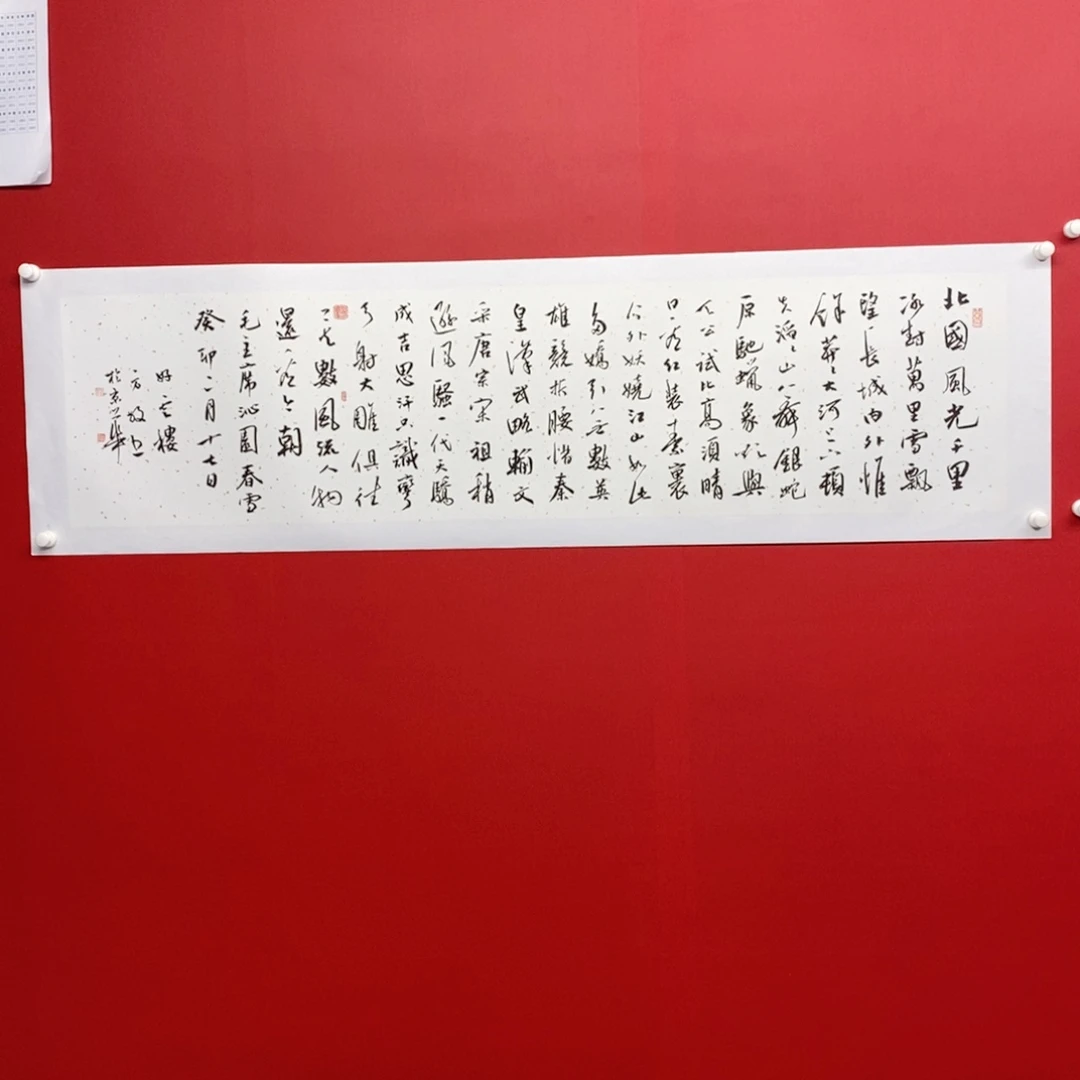 北國風光千里
冰封萬里雪飄
望長城內外惟
餘莽々大河上下頓
失滔々山舞銀蛇
原馳蠟象欲與
天公試比高須晴
日看紅裝素裹
分外妖嬈江山如此
多嬌引無數英
雄競折腰惜秦
皇漢武略輸文
采唐宗宋祖稍
遜風騷一代天驕
成吉思汗只識彎
弓射大雕俱往
矣數風流人物
還看今朝
毛主席沁園春雪
癸卯二月十七日
好雲樓
於京華